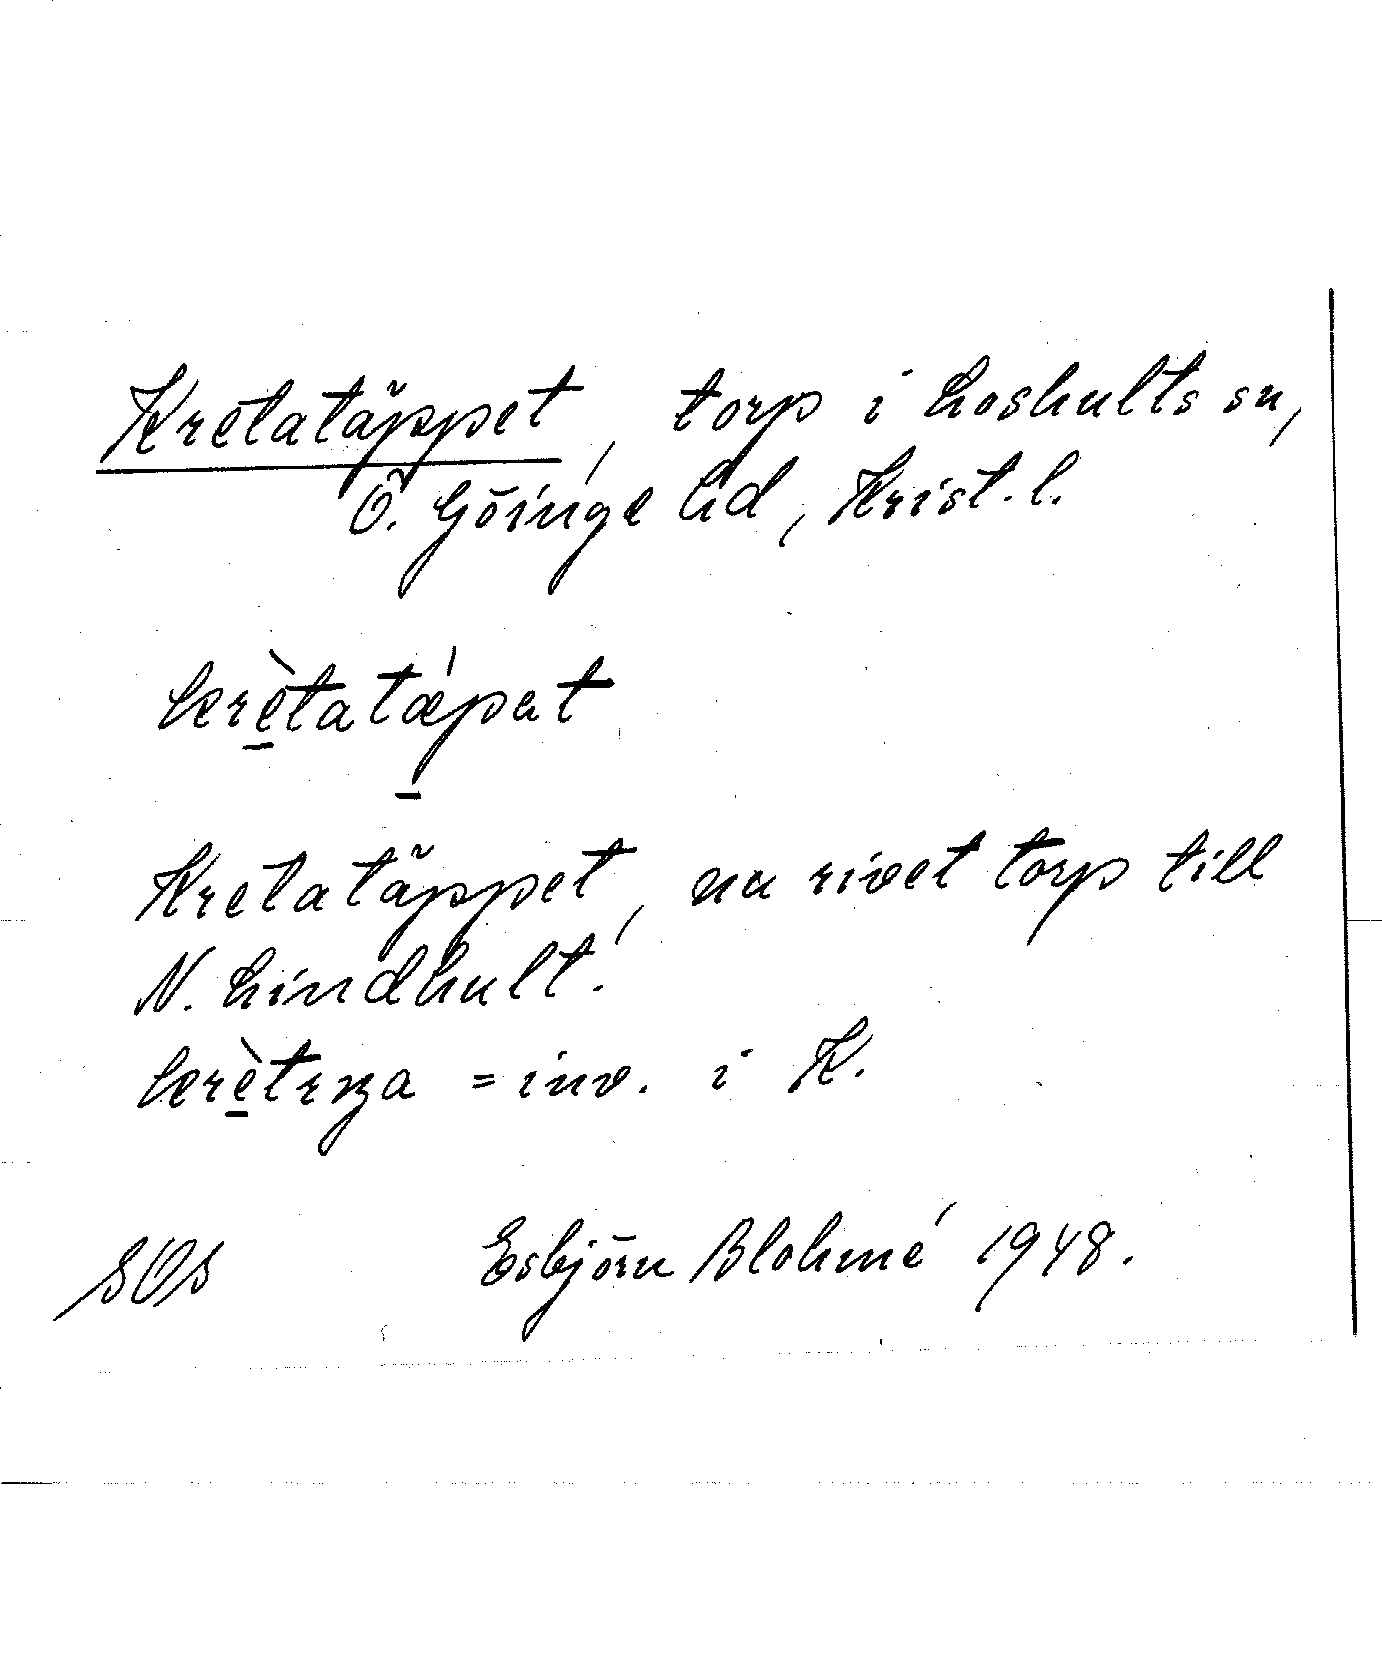 Kretatäppet, torp i Loshults sn,
Ö. Göinge hd, Krist. l.
krètatǽpat
Kretatäppet, nu rivet torp till
N. Lindhult.
= inv. i K.
SOS Esbjörn Blohmé 1948.